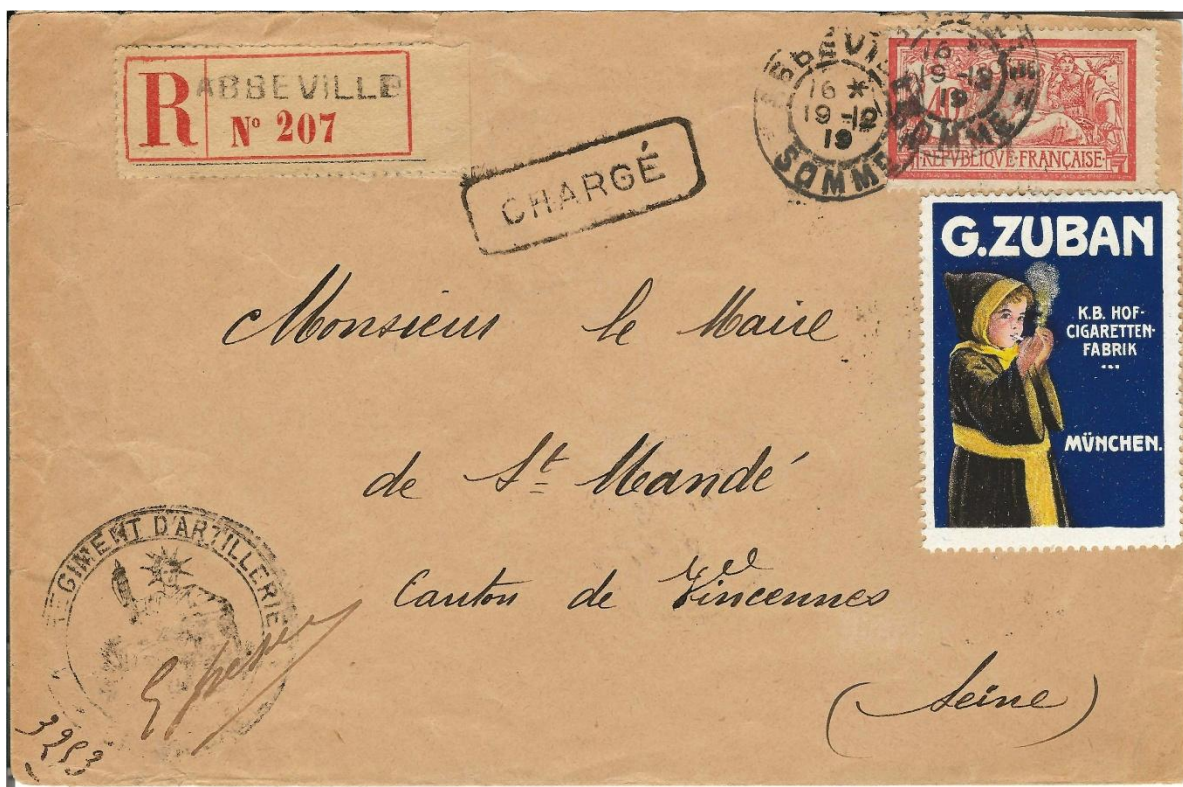 R ABBEVILLE
N° 207
CHARGÉ
16 *
19 -12
19
SOMME
16 *
19 -12
19
SOMME
REPVBLIQVE FRANÇAISE
G.ZUBAN
K.B. HOF-
CIGARETTEN-
FABRIK
MÜNCHEN.
Monsieur le Maire
de St Mandé
Canton de Vincennes
(Seine)
REGIMENT D'ARTILLERIE
3253